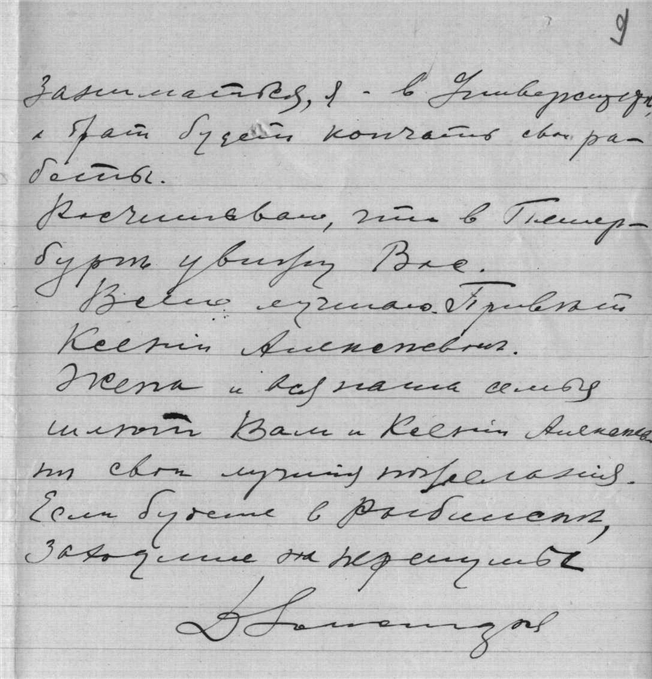 9
заниматься, я - в Университ,
а брат будет кончать свои ра-
боты.
Рассчитываю, что в Петер-
бурге увижу Вас.
Всего лучшаго. Привет
Ксении Алексеевне.
Жена и вся наша семья
шлют Вам и Ксении Алексеев-
не свои лучшия пожелания.
Если будете в Рыбинске,
заходите на